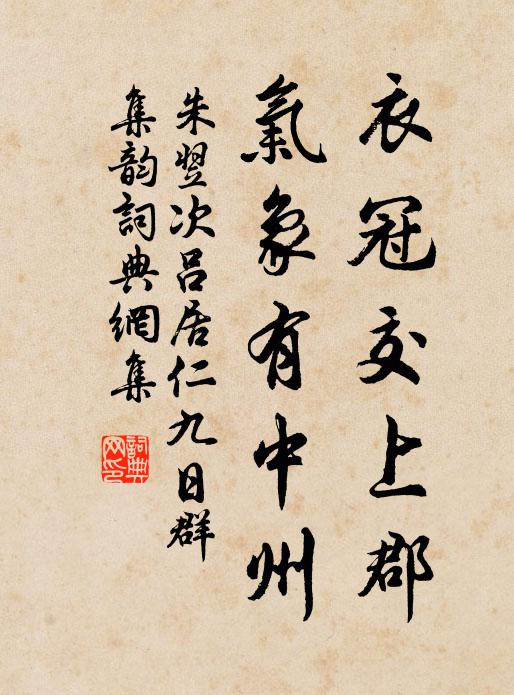 衣冠交上郡
氣象有中州
朱翌次呂居仁九日群
集韵詞典網集
詞典
网印